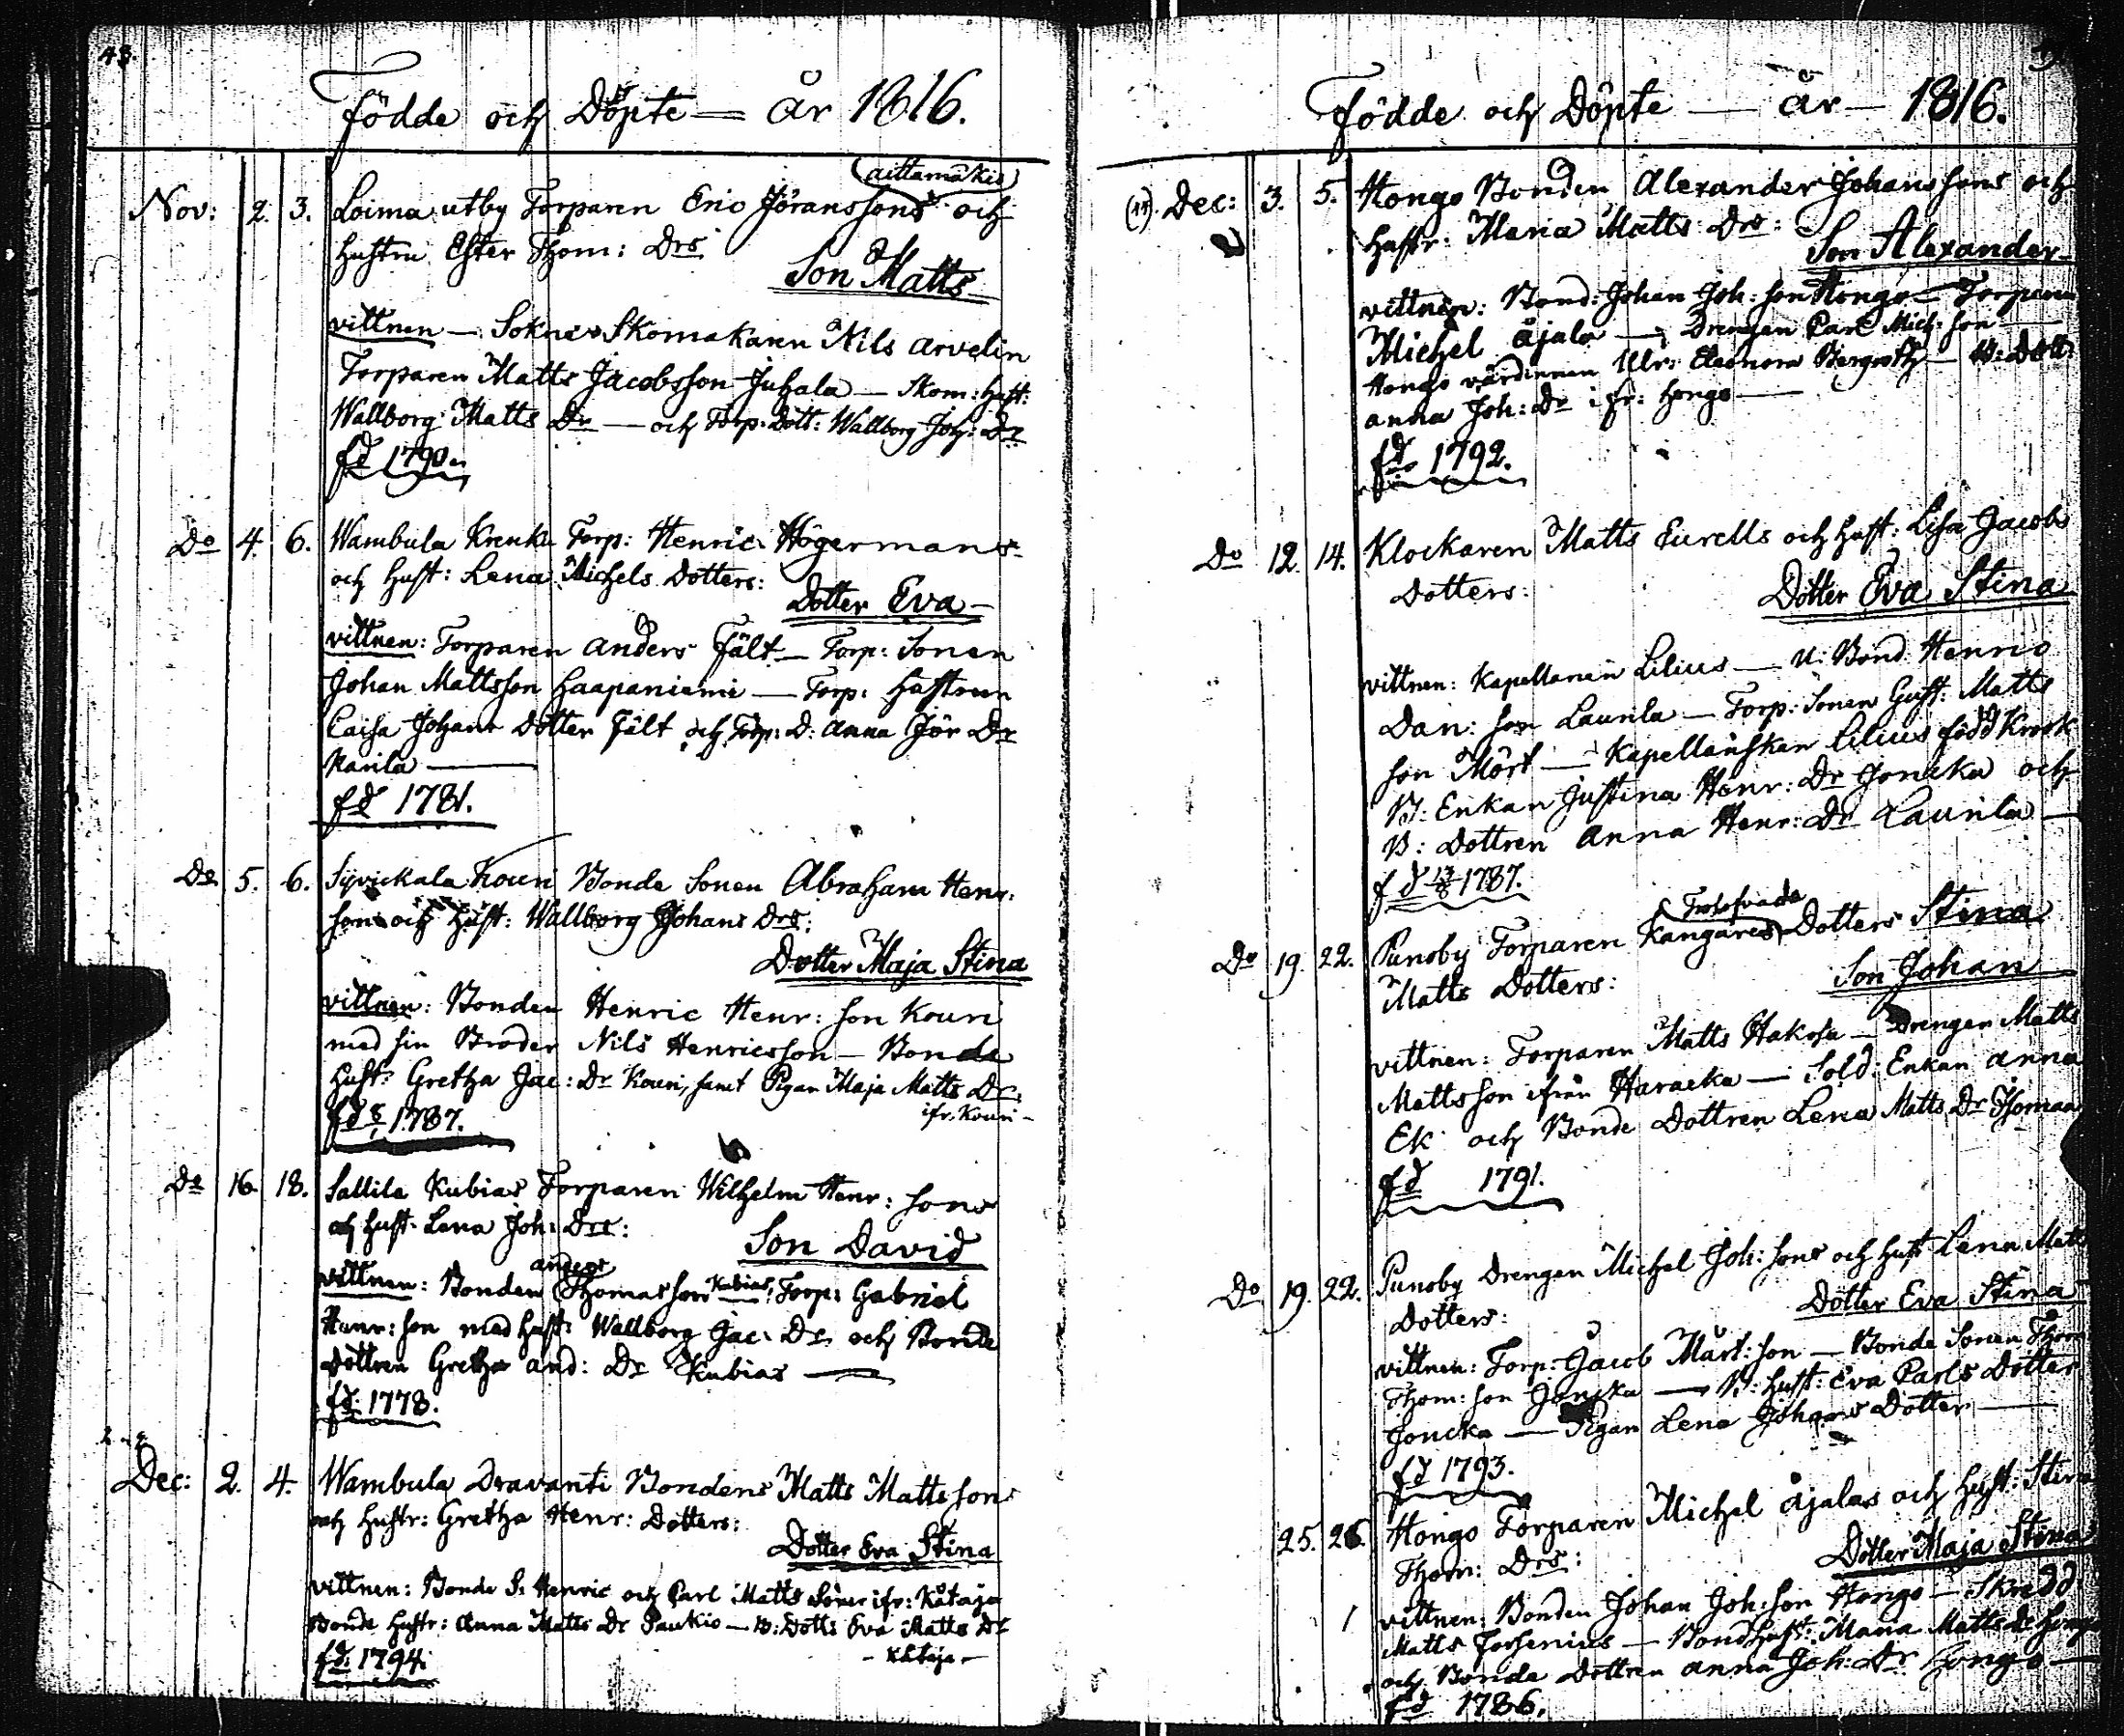 48.
Födde och Döpte — år 1816.
(aittamäkis)
Nov: 2. 3. Loima utby Torparen Eric Jöranssons och
hustru Ester Thom: Drs
Son Matts
vittnen — Sokne Skomakaren Nils Arvelin
Torparen Matts Jacobsson Juhala — Skom: hust:
Wallborg Matts Dr — och Torp: Dott: Wallborg Joh: Dr
fd 1790.
Do 4. 6. Wambula Krenku Torp: Henric Högermans
och hust: Lena Michels Dotters:
Dotter Eva —
vittnen: Torparen Anders Fält — Torp: Sonen
Johan Mattsson Haapaniemi — Torp: Hustrun
Caisa Johans Dotter Fält och Torp: D: Anna Jör Dr
Karila —
fd 1781.
Do 5. 6. Syvickala Kouri Bonde Sonen Abraham Henr:
sons och hust: Wallborg Johans Drs:
Dotter Maja Stina
vittnen: Bonden Henric Henr: son Kouri
med sin Broder Nils Henricsson — Bonde
hust: Gretha Jac: Dr Kouri, samt Pigan Maja Matts Dr:
ifr. Kouri —
fd 1787.
Do 16. 18. Sallila Kubias Torparen Wilhelm Henr: sons
och hust: Lena Joh: Drs:
Son David
anders
vittnen: Bonden Thomasson Kubias, Torp: Gabriel
Henr: son med hust: Wallborg Jac: Dr och Bonde
Dottren Gretha And: Dr Kubias —
fd: 1778.
Dec: 2. 4. Wambula Dravanti Bondens Matts Mattssons
och hustr: Gretha Henr: Dotters:
Dotter Eva Stina
vittnen: Bonde S: Henric och Carl Matts Söner ifr: Kätaja
Bonde hustr: Anna Matts Dr Paukio — B: Dott: Eva Matts Dr
— Kätaja —
fd: 1794.
Födde och Döpte — år — 1816.
(11). Dec: 3. 5. Hongo Bonden Alexander Johanssons och
hustr: Maria Matts Drs:
Son Alexander
vittnen: Bond: Johan Joh: son Hongo — Torparen
Michel Äjala — Drengen Carl Mich: son —
Hongo värdinnan Ulr: Eleonora Bergroth — B: Dott:
Anna Joh: Dr ifr: Hongo —
fd 1792.
Do 12. 14. Klockaren Matts Eurells och hust: Lisa Jacobs
Dotters:
Dotter Eva Stina
vittnen: Kapellanen Lilius — U: Bond: Henric
Dan: son Laurila — Torp: Sonen Gust: Matts
son Mört — Kapellanskan Lilius född Krook
B: Enkan Justina Henr: Dr Joncka och
B: Dottren Anna Henr: Dr Laurila —
fd 13/8 1787.
Do 19. 22. Punoby Torparen Kangares Dotters Stina
Matts Dotters:
Son Johan
vittnen: Torparen Matts Haksa — Drengen Matts
Mattsson ifrån Haracka — Sold: Enkan Anna
Ek och Bonde Dottren Lena Matts Dr Thomaa
fd 1791.
Do 19. 22. Punoby Drengen Michel Joh: sons och hust Lena Matts
Dotters:
Dotter Eva Stina
vittnen: Torp: Jacob Mårt: son — Bonde Sonen Thom
Thom: son Joncka — B: hust: Eva Carls Dotter
Joncka — Pigan Lena Johans Dotter —
fd 1793.
25. 26. Hongo Torparen Michel Äjalas och hust: Stina
Thom: Drs:
Dotter Maja Stina
vittnen: Bonden Johan Joh: son Hongo — Skredd:
Matts Forsenius — Bond hust: Maria Matts Dr Hongo
och Bonde Dottren Anna Joh: Dr Hongo —
fd 1786.